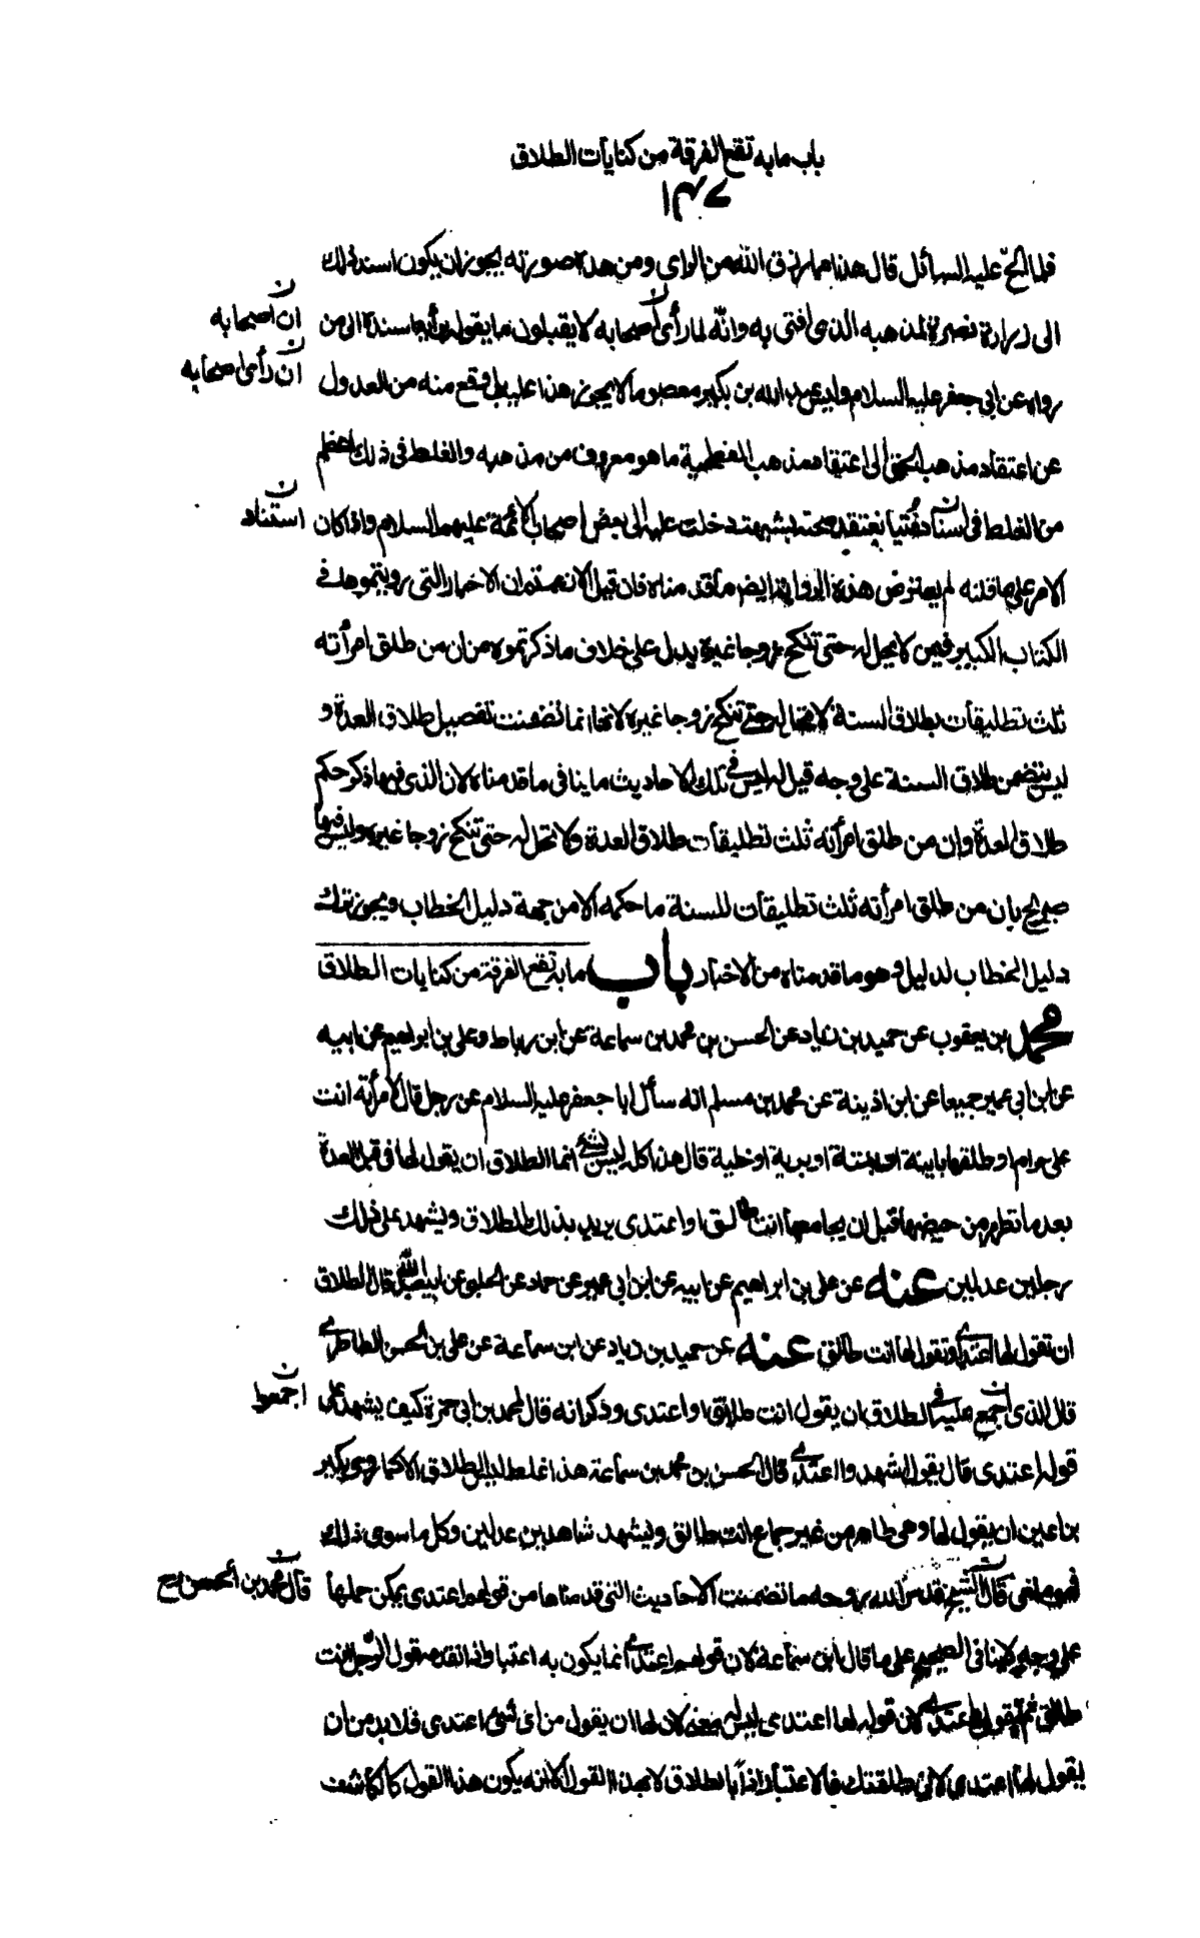 باب ما به تقع الفرقة من كنايات الطلاق
١٤٧
فلما الحّ عليه السائل قال هذا مما رزق الله من الراى ومن هذه صورته يجوز ان يكون اسند ذلك
الى زرارة نصرة لمذهبه الذى افتى به وانّه لما رأى اصحابه لا يقبلون ما يقوله برأيه اسنده الى من
ان اصحابه
ان رأى اصحابه
رواه عن ابى جعفر عليه السلام وليس عبد الله بن بكير معصوما لا يجوز هذا عليه بل وقع منه من العدول
عن اعتقاد مذهب الحق الى اعتقاد مذهب الفطحية ما هو معروف من مذهبه والغلط فى ذلك اعظم
من الغلط فى اسناد فتيا يعتقد صحته لشبهة دخلت عليه الى بعض اصحاب الأئمة عليهم السلام واذا كان
استناد
الامر على ما قلنه لم يعترض هذه الرواية ايضا ما قدمناه فان قيل الا نعمتم ان الاخبار التى رويتموها فى
الكتاب الكبير فيمن لا يحل له حتى تنكح زوجا غيره يدل على خلاف ما ذكرتموه من ان من طلق امرأته
ثلث تطليقات بطلاق السنة لا تحل له حتى تنكح زوجا غيره لانها انما تضمنت تفصيل طلاق العدة و
ليس يتضمن طلاق السنة على وجه قيل له ليس فى تلك الاحاديث ما ينافى ما قدمناه لان الذى فيها ذكر حكم
طلاق العدة وان من طلق امرأته ثلث تطليقات طلاق العدة ولا تحل له حتى تنكح زوجا غيره وليس فيها
صريح بان من طلق امرأته ثلث تطليقات للسنة ما حكمه الا من جهة دليل الخطاب ويجوز ترك
دليل الخطاب لدليل وهو ما قدمناه من الاخبار باب ما به تقع الفرقة من كنايات الطلاق
محمد بن يعقوب عن حميد بن زياد عن الحسن بن محمد بن سماعة عن ابن رباط وعلى بن ابراهيم عن ابيه
عن ابن ابى عمير جميعا عن ابن اذينة عن محمد بن مسلم انه سأل ابا جعفر عليه السلام عن رجل قال لامرأته انت
على حرام او طلقها باينة او بتة او برية او خلية قال هذا كله ليس بشئ انما الطلاق ان يقول لها فى قبل العدة
بعد ما تطهر من حيضها قبل ان يجامعها انت طالق او اعتدى يريد بذلك الطلاق ويشهد على ذلك
رجلين عدلين عنه عن على بن ابراهيم عن ابيه عن ابن ابى عمير عن حماد عن الحلبى عن ابى عبد الله قال الطلاق
ان تقول لها اعتدى او تقول لها انت طالق عنه عن حميد بن زياد عن ابن سماعة عن على بن الحسن الطاطرى
قال الذى اجمع عليه فى الطلاق ان يقول انت طالق او اعتدى وذكر انه قال لمحمد بن ابى حمزة كيف يشهد على
اجمعوا
قوله اعتدى قال يقول اشهدوا اعتدى قال الحسن بن محمد بن سماعة هذا غلط ليس الطلاق الا كما روى بكير
بن اعين ان يقول لها وهى طاهر من غير جماع انت طالق ويشهد شاهدين عدلين وكل ما سوى ذلك
فهو ملغى قال الشيخ قدس الله روحه ما تضمنت الاحاديث التى قدمناها من قولهم اعتدى يمكن حملها
قال محمد بن الحسن رح
على وجه لا ينافى الصحيح على ما قال ابن سماعة لان قولهم اعتدى انما يكون به اعتبار اذا تقدمه قول الرجل انت
طالق ثم يقول اعتدى لان قوله لها اعتدى ليس له معنى لان لها ان يقول من اى شئ اعتدى فلا بد من ان
يقول لها اعتدى لانى طلقتك فالاعتبار اذاً بالطلاق لا بهذا القول الا انه يكون هذا القول كالكاشف